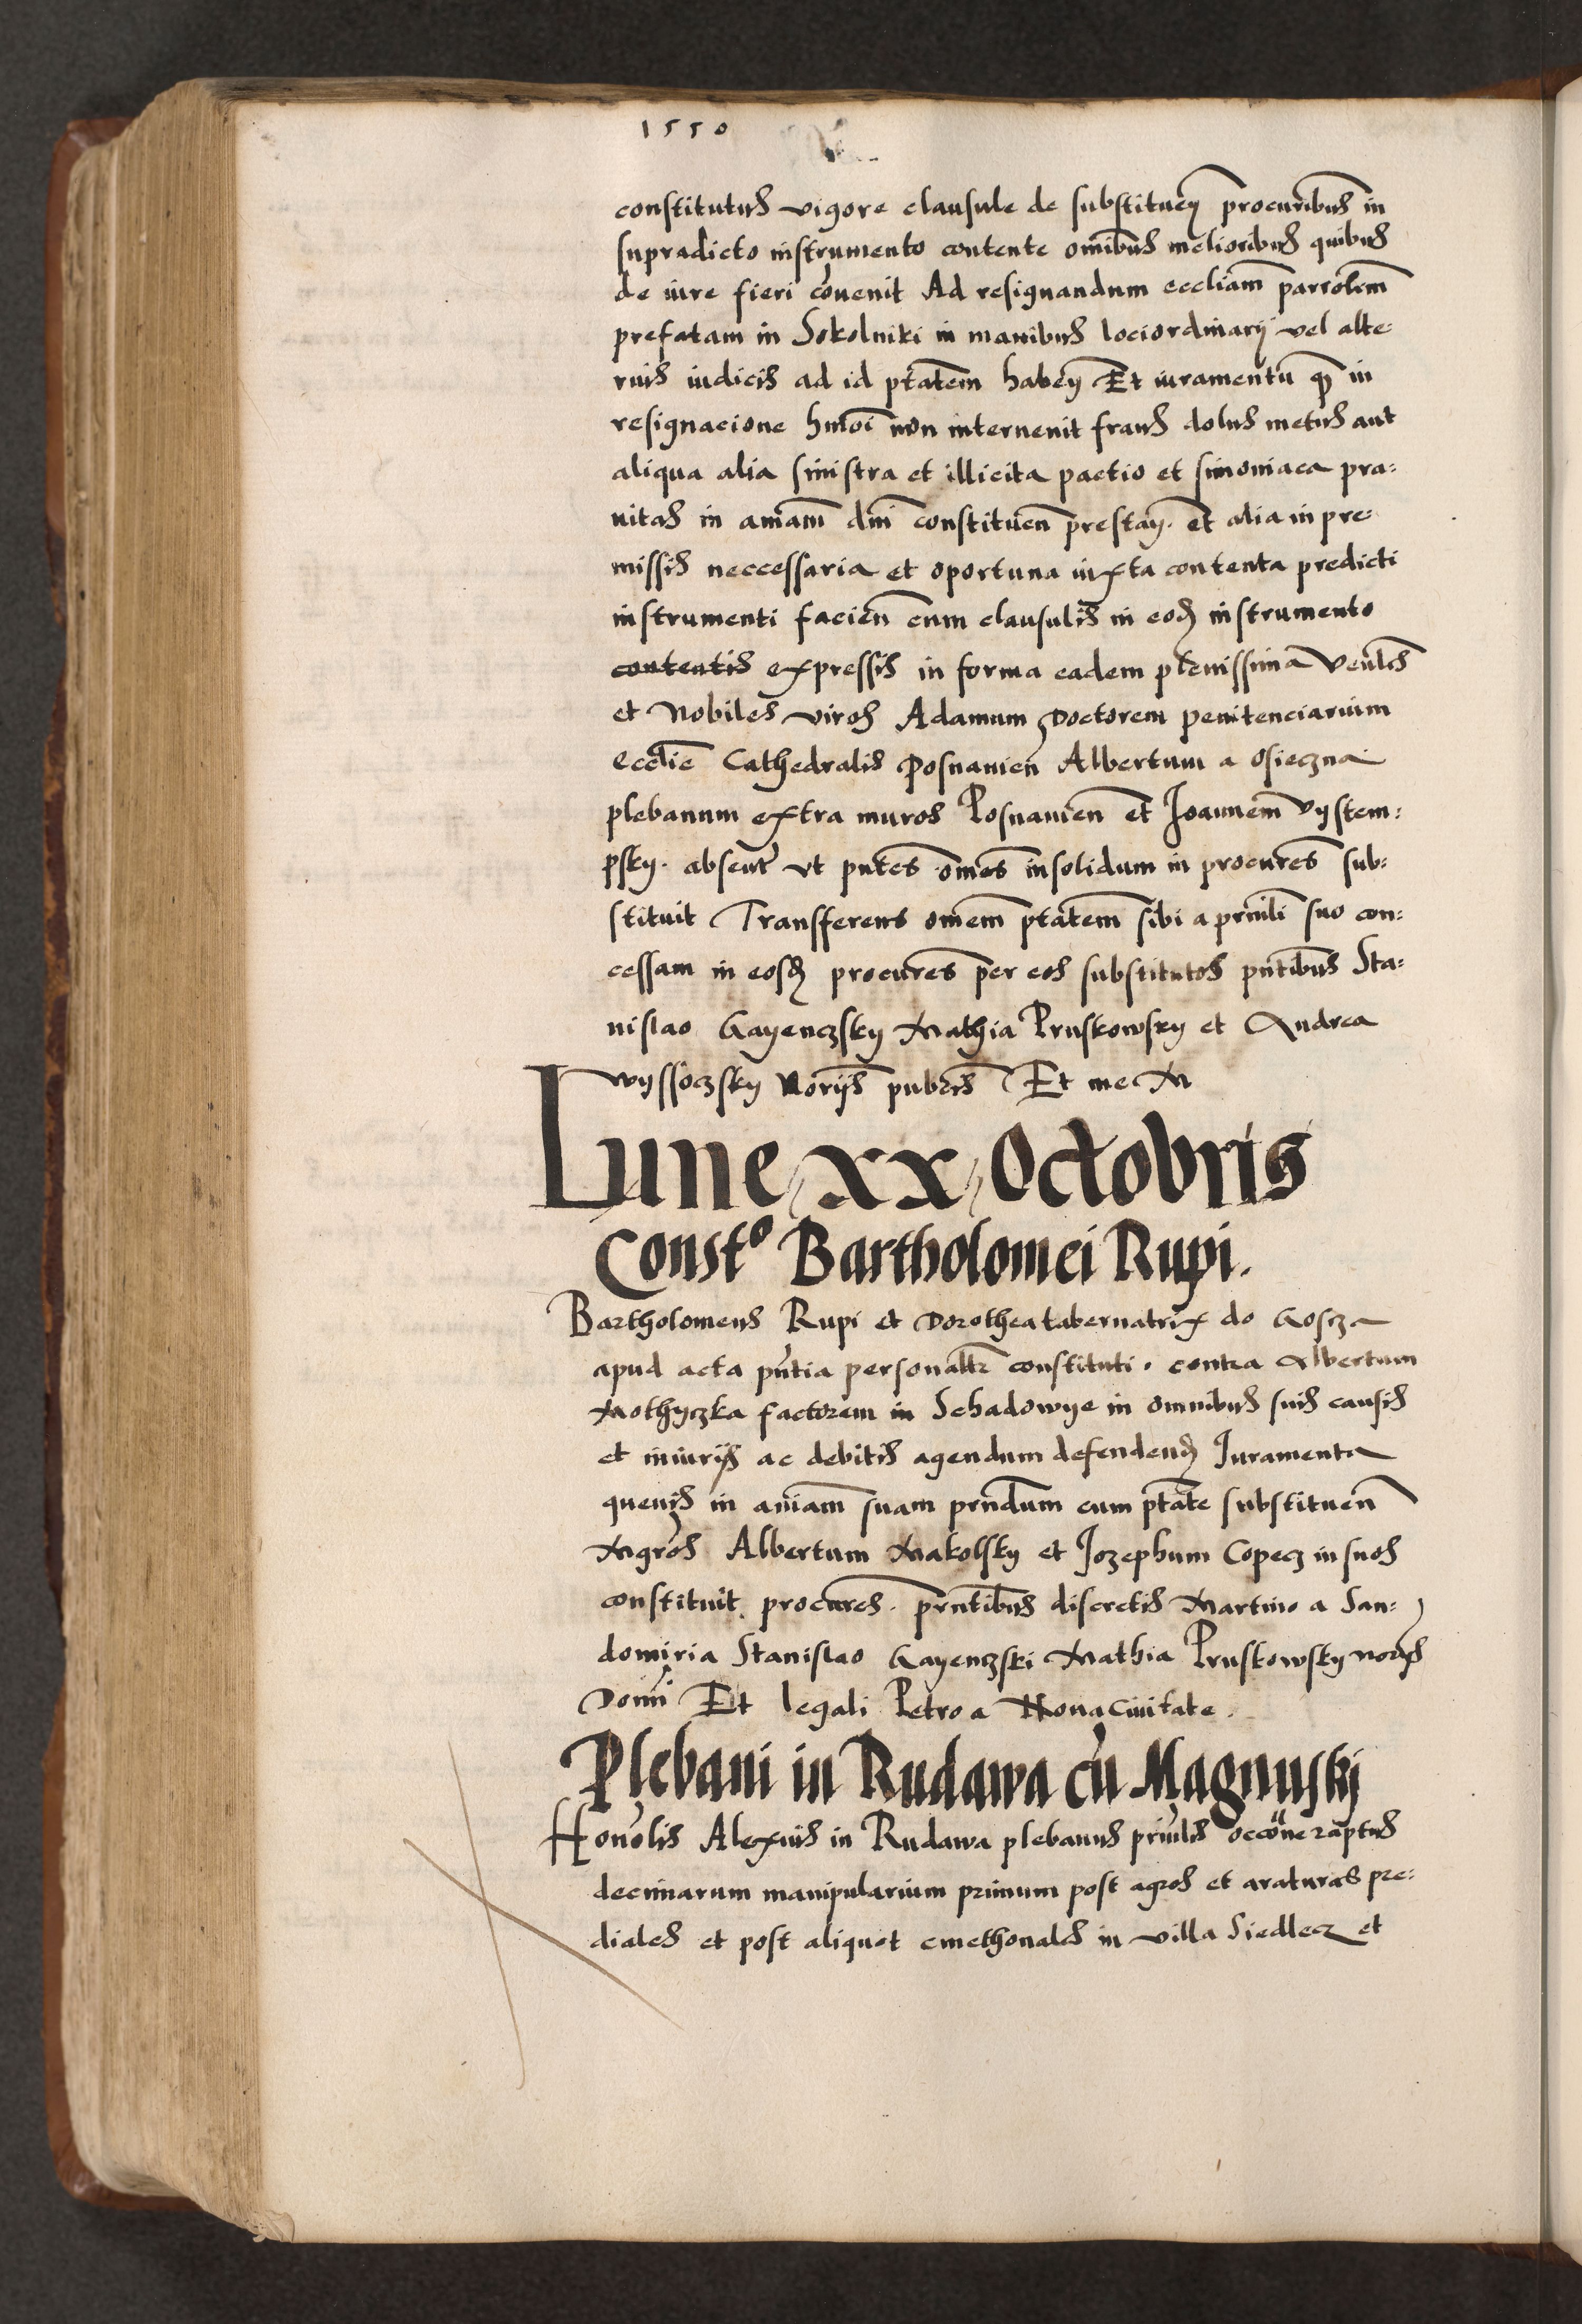 1550
constitutus vigore clausule de substituen̄ procuribus in
supradicto instrumento contente om̄ibus melioribus quibus
de iure fieri cōuenit Ad resignandum eccl̄iam parrol̄em
prefatam in Sokolniki in manibus lociordinarij vel alte-
rius iudicis ad id ptātem haben̄ Et iuramentū ꝙ in
resignacione hmōi non interuenit fraus dolus metus aut
aliqua alia sinistra et illicita pactio et simoniaca pra=
uitas in aīmam dnī constituen̄ prestan̄. et alia in pre-
missis neccessaria et oportuna iuxta contenta predicti
instrumenti facien̄ cum clausulis in eod̄ instrumento
contentis expressis in forma eadem plenissima Ven̄les
et Nobiles viros Adamum Doctorem penitenciarium
eccl̄ie Cathedralis Posnanien̄ Albertum a Osieczna
plebanum extra muros Posnanien̄ et Joannem Vystem=
psky. absent̄ vt pn̄tes om̄es insolidum in procur̄es sub=
stituit Transferens om̄em ptātem sibi a prin̄li suo con=
cessam in eosd̄ procur̄es per eos substitutos pn̄tibus Sta=
nislao Gayenczsky Mathia Pruskowsky et Andrea
Wyssoczsky Norijs publ̄cis Et me M
Lune xx Octobris
Constº Bartholomei Rupi.
Bartholomeus Rupi et Dorothea tabernatrix do Gosza
apud acta pn̄tia personalr̄ constituti. contra Albertum
Mothyczka factorem in Schadowye in omnibus suis causis
et iniurijs ac debitis agendum defendend̄ Juramenta
queuis in an̄iam suam prn̄dum cum ptāte substituen̄
Mgr̄os Albertum Makolsky et Jozephum Copecz in suos
constituit procur̄es. prn̄tibus discretis Martino a San=
domiria Stanislao Gayenczski Mathia Pruskowsky norijs
Dom̄i Et legali Petro a Noua Ciuitate.
Plebani in Rudawa cū Magnuskj
Honōlis Alexius in Rudawa plebanus prin̄lis occōne raptus
decimarum manipularium primum post agros et araturas pre=
diales et post aliquot cmethonales in villa Siedlecz et